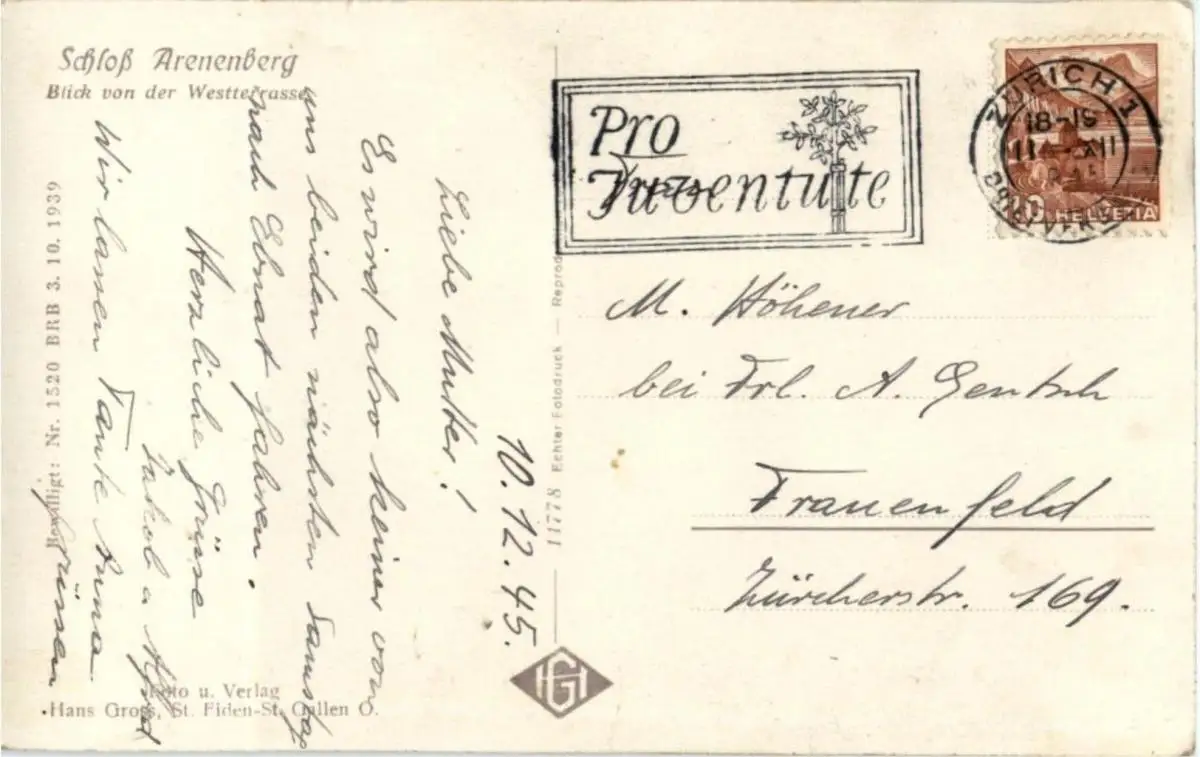 Schloß Arenenberg
Blick von der Westterrasse
Bewilligt: Nr. 1520 BRB 3. 10. 1939
10. 12. 45.
Liebe Mutter!
Es wird also keiner von
uns beiden nächsten Samstag
nach Ebnat fahren.
Herzliche Grüsse
Jakob u
Wir lassen Tante Anna
grüssen
Foto u. Verlag
Hans Gross, St. Fiden-St. Gallen O.
11778 Echter Fotodruck — Reprod
HG
Pro
Juventute
ZÜRICH 1
18-19
XII
HELVETIA
M. Höhener
bei Frl. A. Gentsch
Frauenfeld
Zürcherstr. 169.